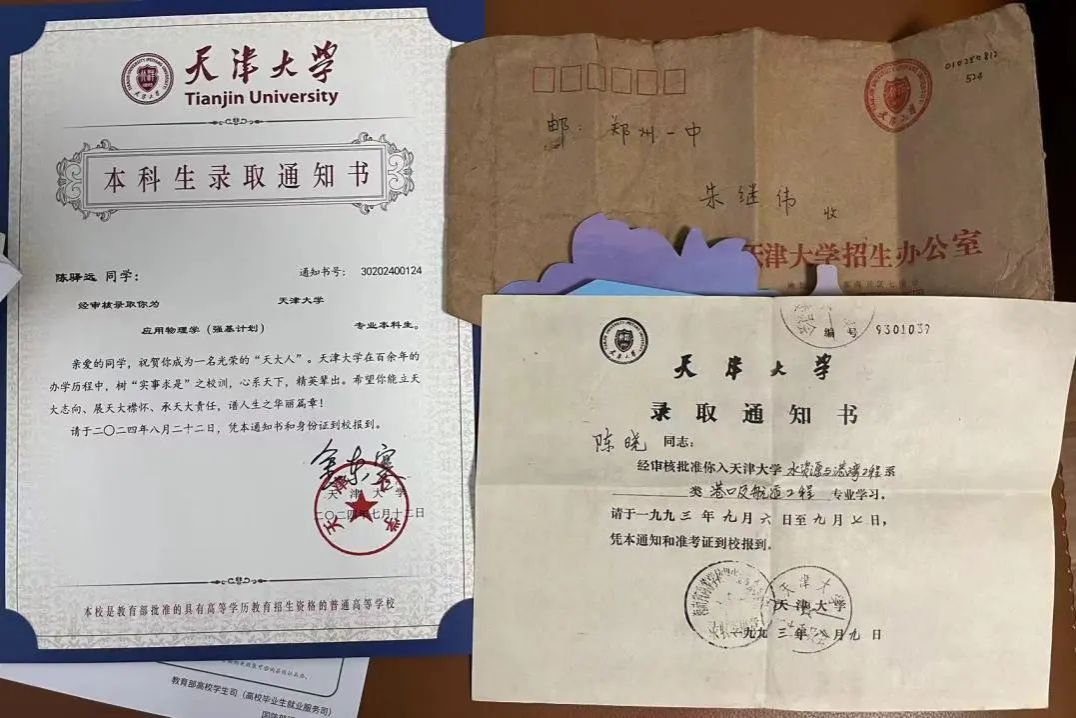 天津大学
Tianjin University
本科生录取通知书
陈驿远 同学：
通知书号： 30202400124
经审核录取你为 天津大学
应用物理学（强基计划） 专业本科生。
亲爱的同学，祝贺你成为一名光荣的“天大人”。天津大学在百余年的
办学历程中，树“实事求是”之校训，心系天下，精英辈出。希望你能立天
大志向、展天大襟怀、承天大责任，谱人生之华丽篇章！
请于二〇二四年八月二十二日，凭本通知书和身份证到校报到。
天津大学
二〇二四年七月十二日
本校是教育部批准的具有高等学历教育招生资格的普通高等学校
教育部高校学生司（高校毕业生就业服务司）
010280812
524
邮：郑州一中
朱继伟 收
天津大学招生办公室
编号 9301037
天津大学
录取通知书
陈晓 同志：
经审核批准你入天津大学 水资源与港湾工程系
类 港口及航道工程 专业学习。
请于一九九三年九月六日至九月七日，
凭本通知和准考证到校报到。
天津大学
一九九三年八月九日